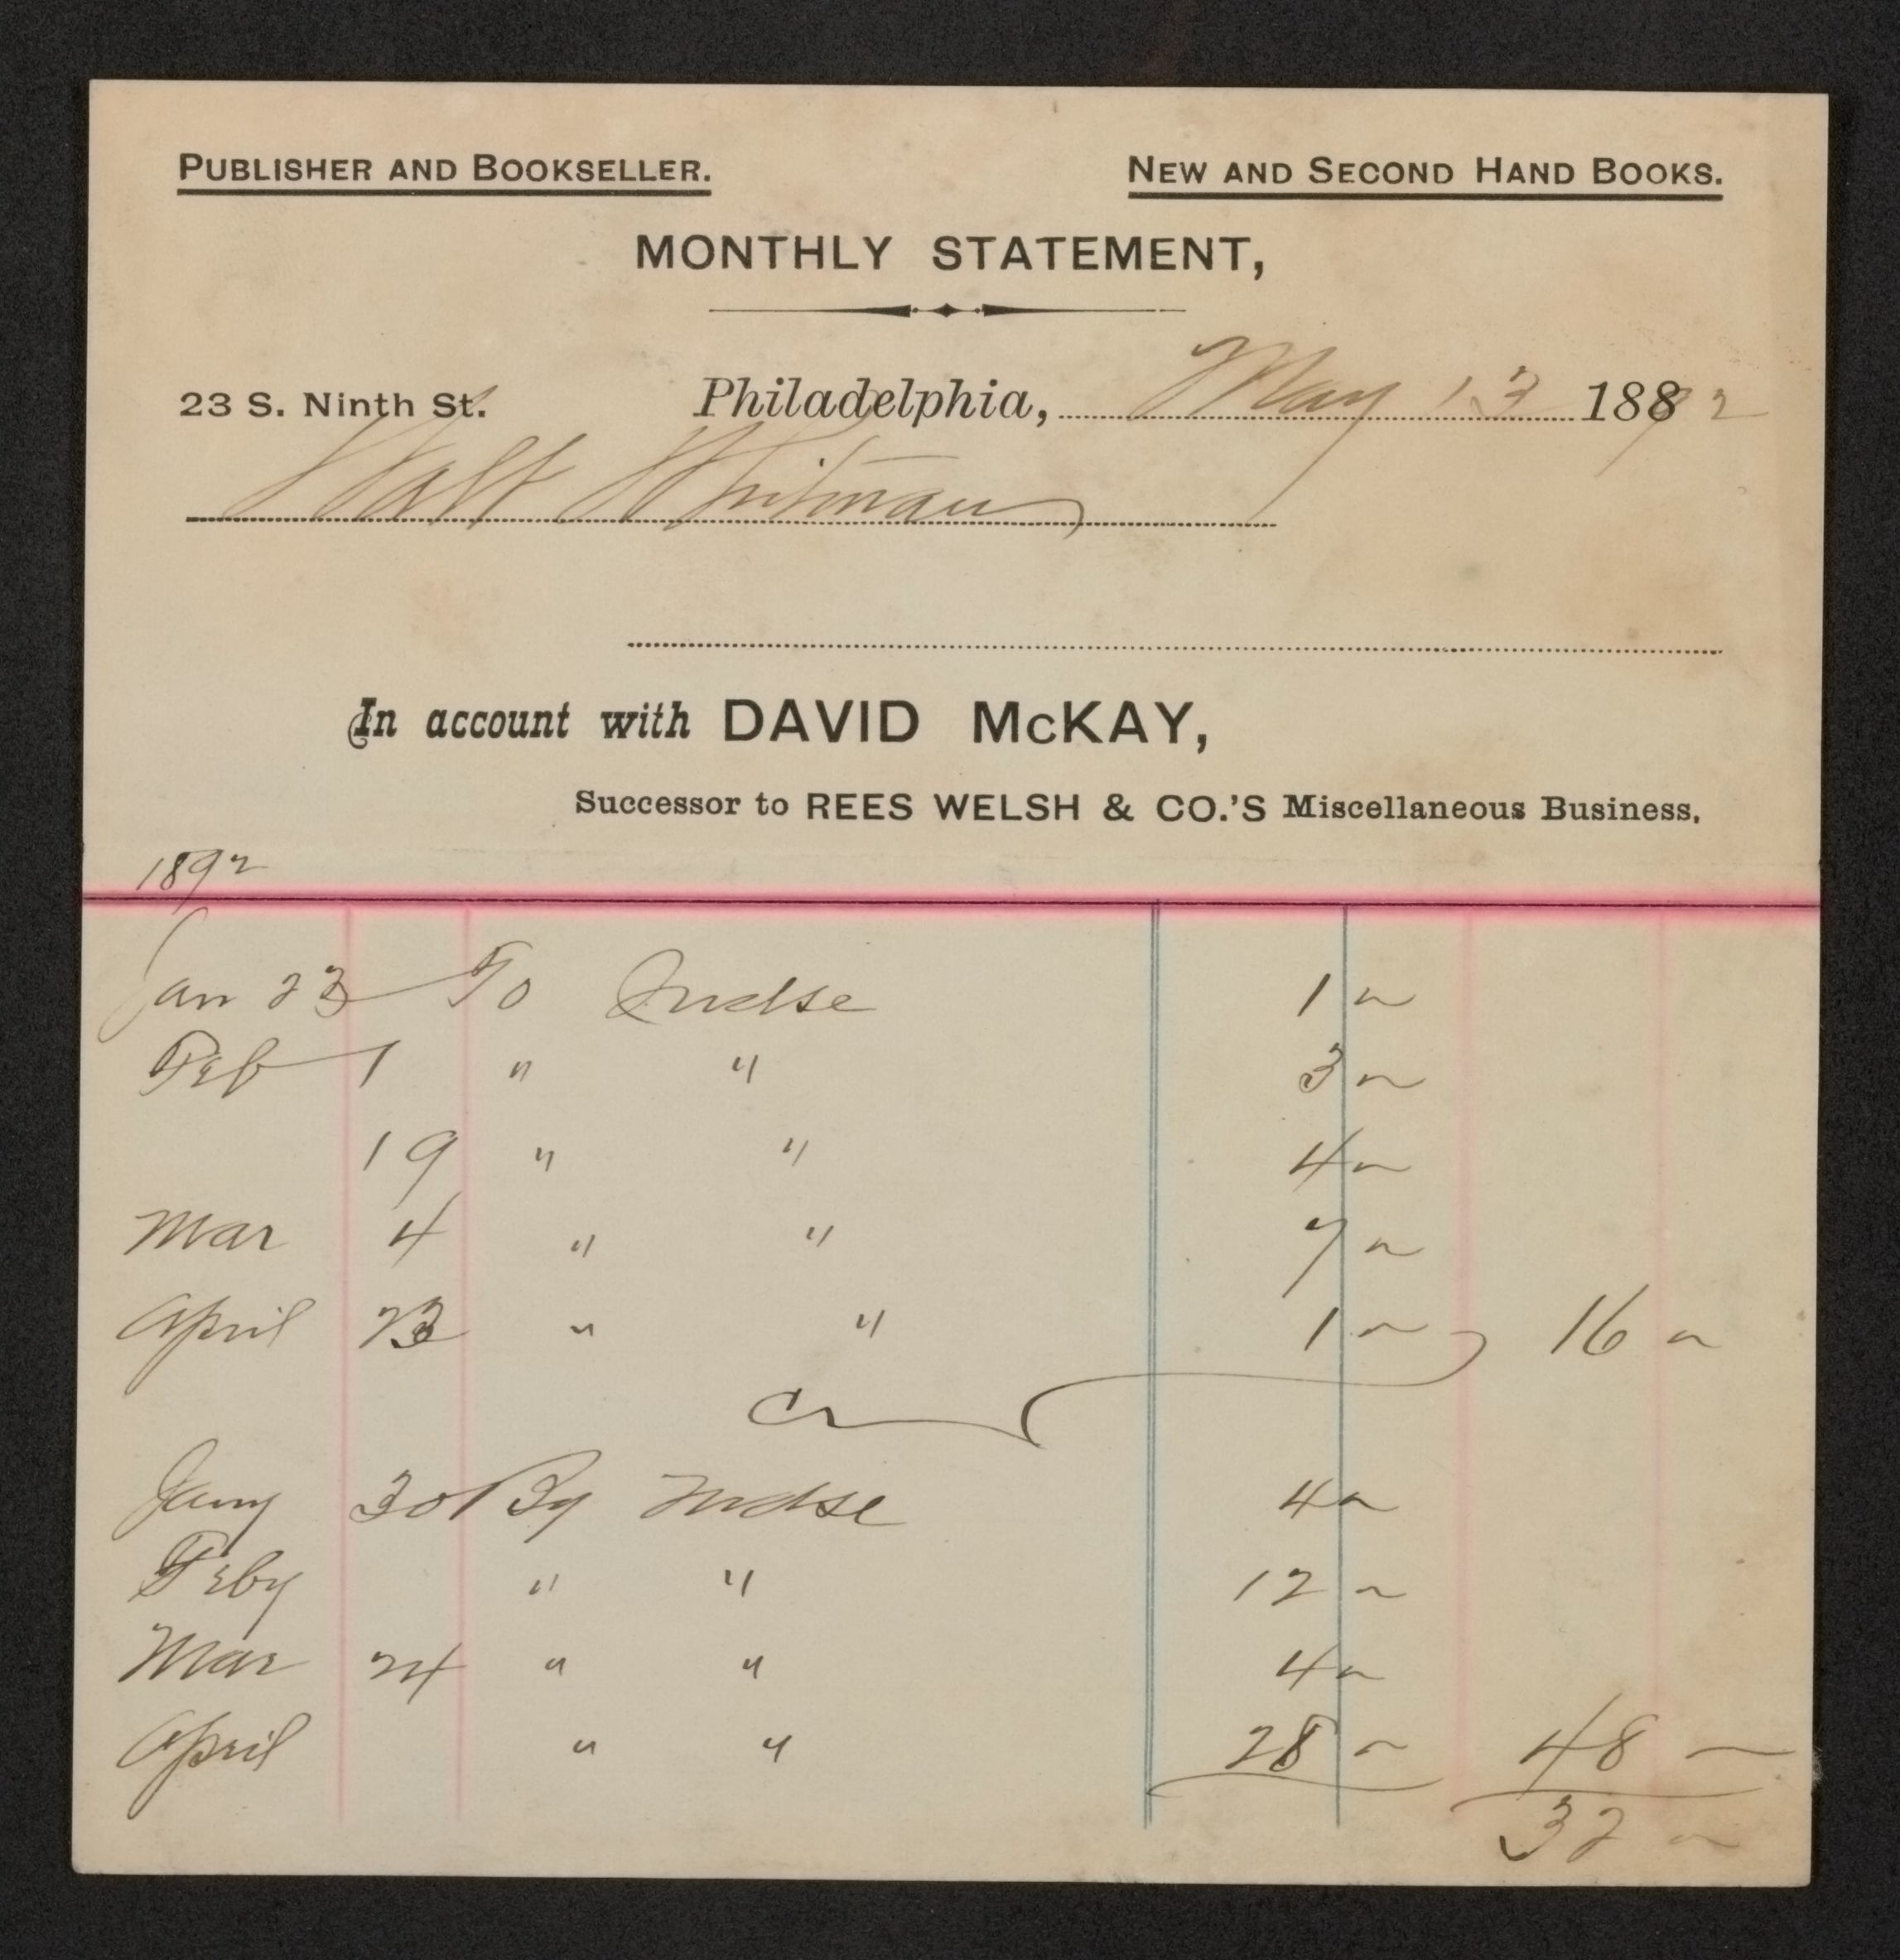 PUBLISHER AND BOOKSELLER. NEW AND SECOND HAND BOOKS.
MONTHLY STATEMENT,
23 S. Ninth St. Philadelphia, May 13 1892
Walt Whitman
In account with DAVID McKAY,
Successor to REES WELSH & CO.'S Miscellaneous Business.
1892
Jan 23 To Mdse 1 ~
Feb 1 " " 3 ~
19 " " 4 ~
Mar 4 " " 7 ~
April 23 " " 1 ~ 16 ~
Cr
Jany 30 By Mdse 4 ~
Feby " " 12 ~
Mar 24 " " 4 ~
April " " 28 ~ 48 ~
32 ~